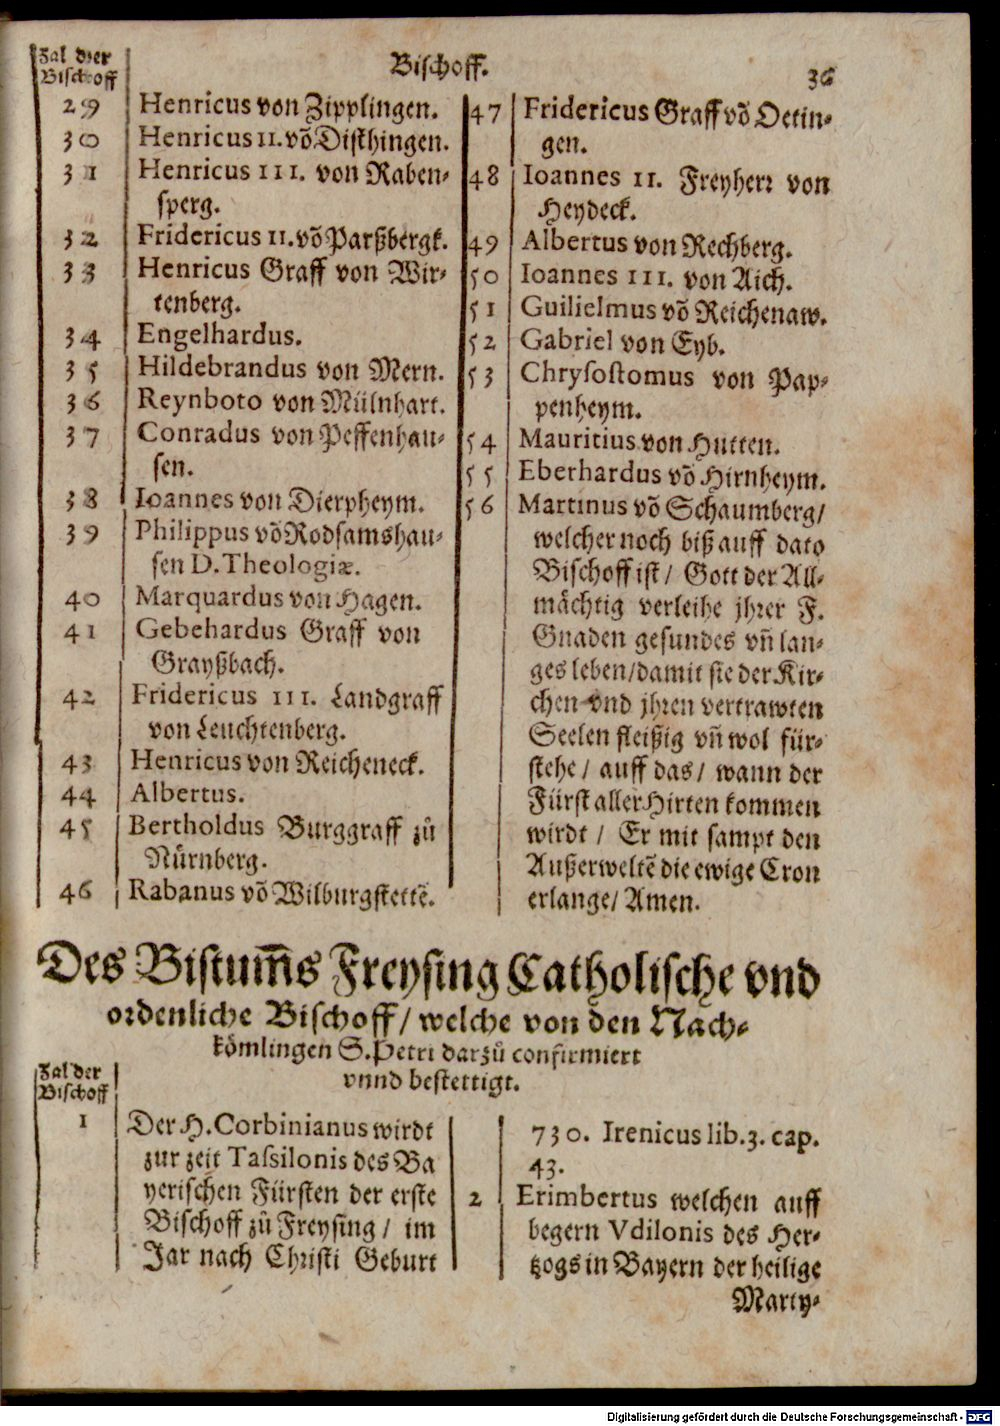 Zal dɛr
Bischoff
Bischoff.
36
29 Henricus von Zipplingen.
30 Henricus II. võ Disthingen.
31 Henricus III. von Raben-
sperg.
32 Fridericus II. võ Parßbergk.
33 Henricus Graff von Wir-
tenberg.
34 Engelhardus.
35 Hildebrandus von Mern.
36 Reynboto von Mülnhart.
37 Conradus von Peffenhau-
sen.
38 Ioannes von Dierpheym.
39 Philippus võ Rodsamshau-
sen D. Theologiæ.
40 Marquardus von Hagen.
41 Gebehardus Graff von
Grayßbach.
42 Fridericus III. Landgraff
von Leuchtenberg.
43 Henricus von Reicheneck.
44 Albertus.
45 Bertholdus Burggraff zů
Nürnberg.
46 Rabanus võ Wilburgstettẽ.
47 Fridericus Graff võ Oetin-
gen.
48 Ioannes II. Freyherr von
Heydeck.
49 Albertus von Rechberg.
50 Ioannes III. von Aich.
51 Guilielmus võ Reichenaw.
52 Gabriel von Eyb.
53 Chrysostomus von Pap-
penheym.
54 Mauritius von Hutten.
55 Eberhardus võ Hirnheym.
56 Martinus võ Schaumberg/
welcher noch biß auff dato
Bischoff ist/ Gott der All-
mächtig verleihe jhrer F.
Gnaden gesundes vñ lan-
ges leben/ damit sie der Kir-
chen vnd jhren vertrawten
Seelen fleißig vñ wol für-
stehe/ auff das/ wann der
Fürst aller Hirten kommen
wirdt/ Er mit sampt den
Außerweltẽ die ewige Cron
erlange/ Amen.
Des Bistum̃s Freysing Catholische vnd
ordenliche Bischoff/ welche von den Nach-
kömlingen S. Petri darzů confirmiert
vnnd bestettigt.
Zal der
Bischoff
1 Der H. Corbinianus wirdt
zur zeit Tassilonis des Ba
yerischen Fürsten der erste
Bischoff zů Freysing/ im
Jar nach Christi Geburt
730. Irenicus lib. 3. cap.
43.
2 Erimbertus welchen auff
begern Vdilonis des Her-
tzogs in Bayern der heilige
Marty-
Digitalisierung gefördert durch die Deutsche Forschungsgemeinschaft - DFG